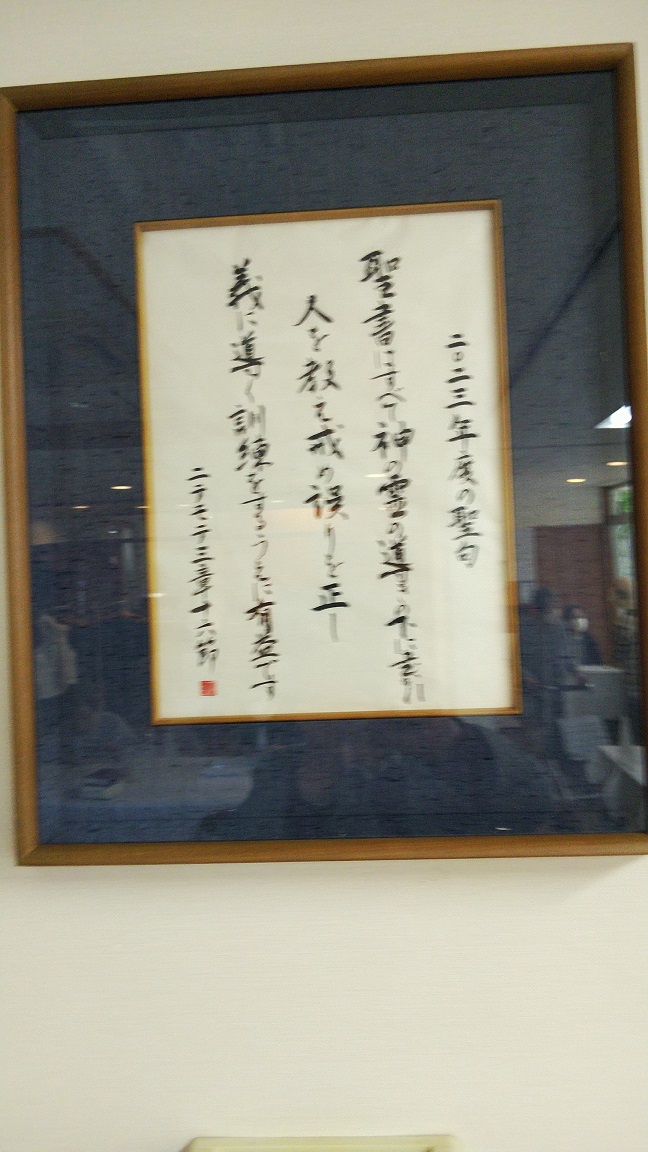 二〇二三年度の聖句
聖書はすべて神の霊の導きの下に書かれ
人を教え戒め誤りを正し
義に導く訓練をするうえに有益です
二テモテ三章十六節